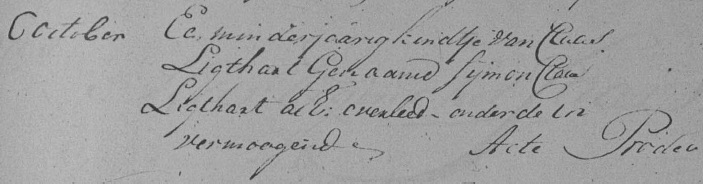 October Een minderjaarig kindtje van Claas
Ligthart Genaamd Sijmon Claas
Ligthart alE: overleed - onder de on
vermoogend Acte Prodeo